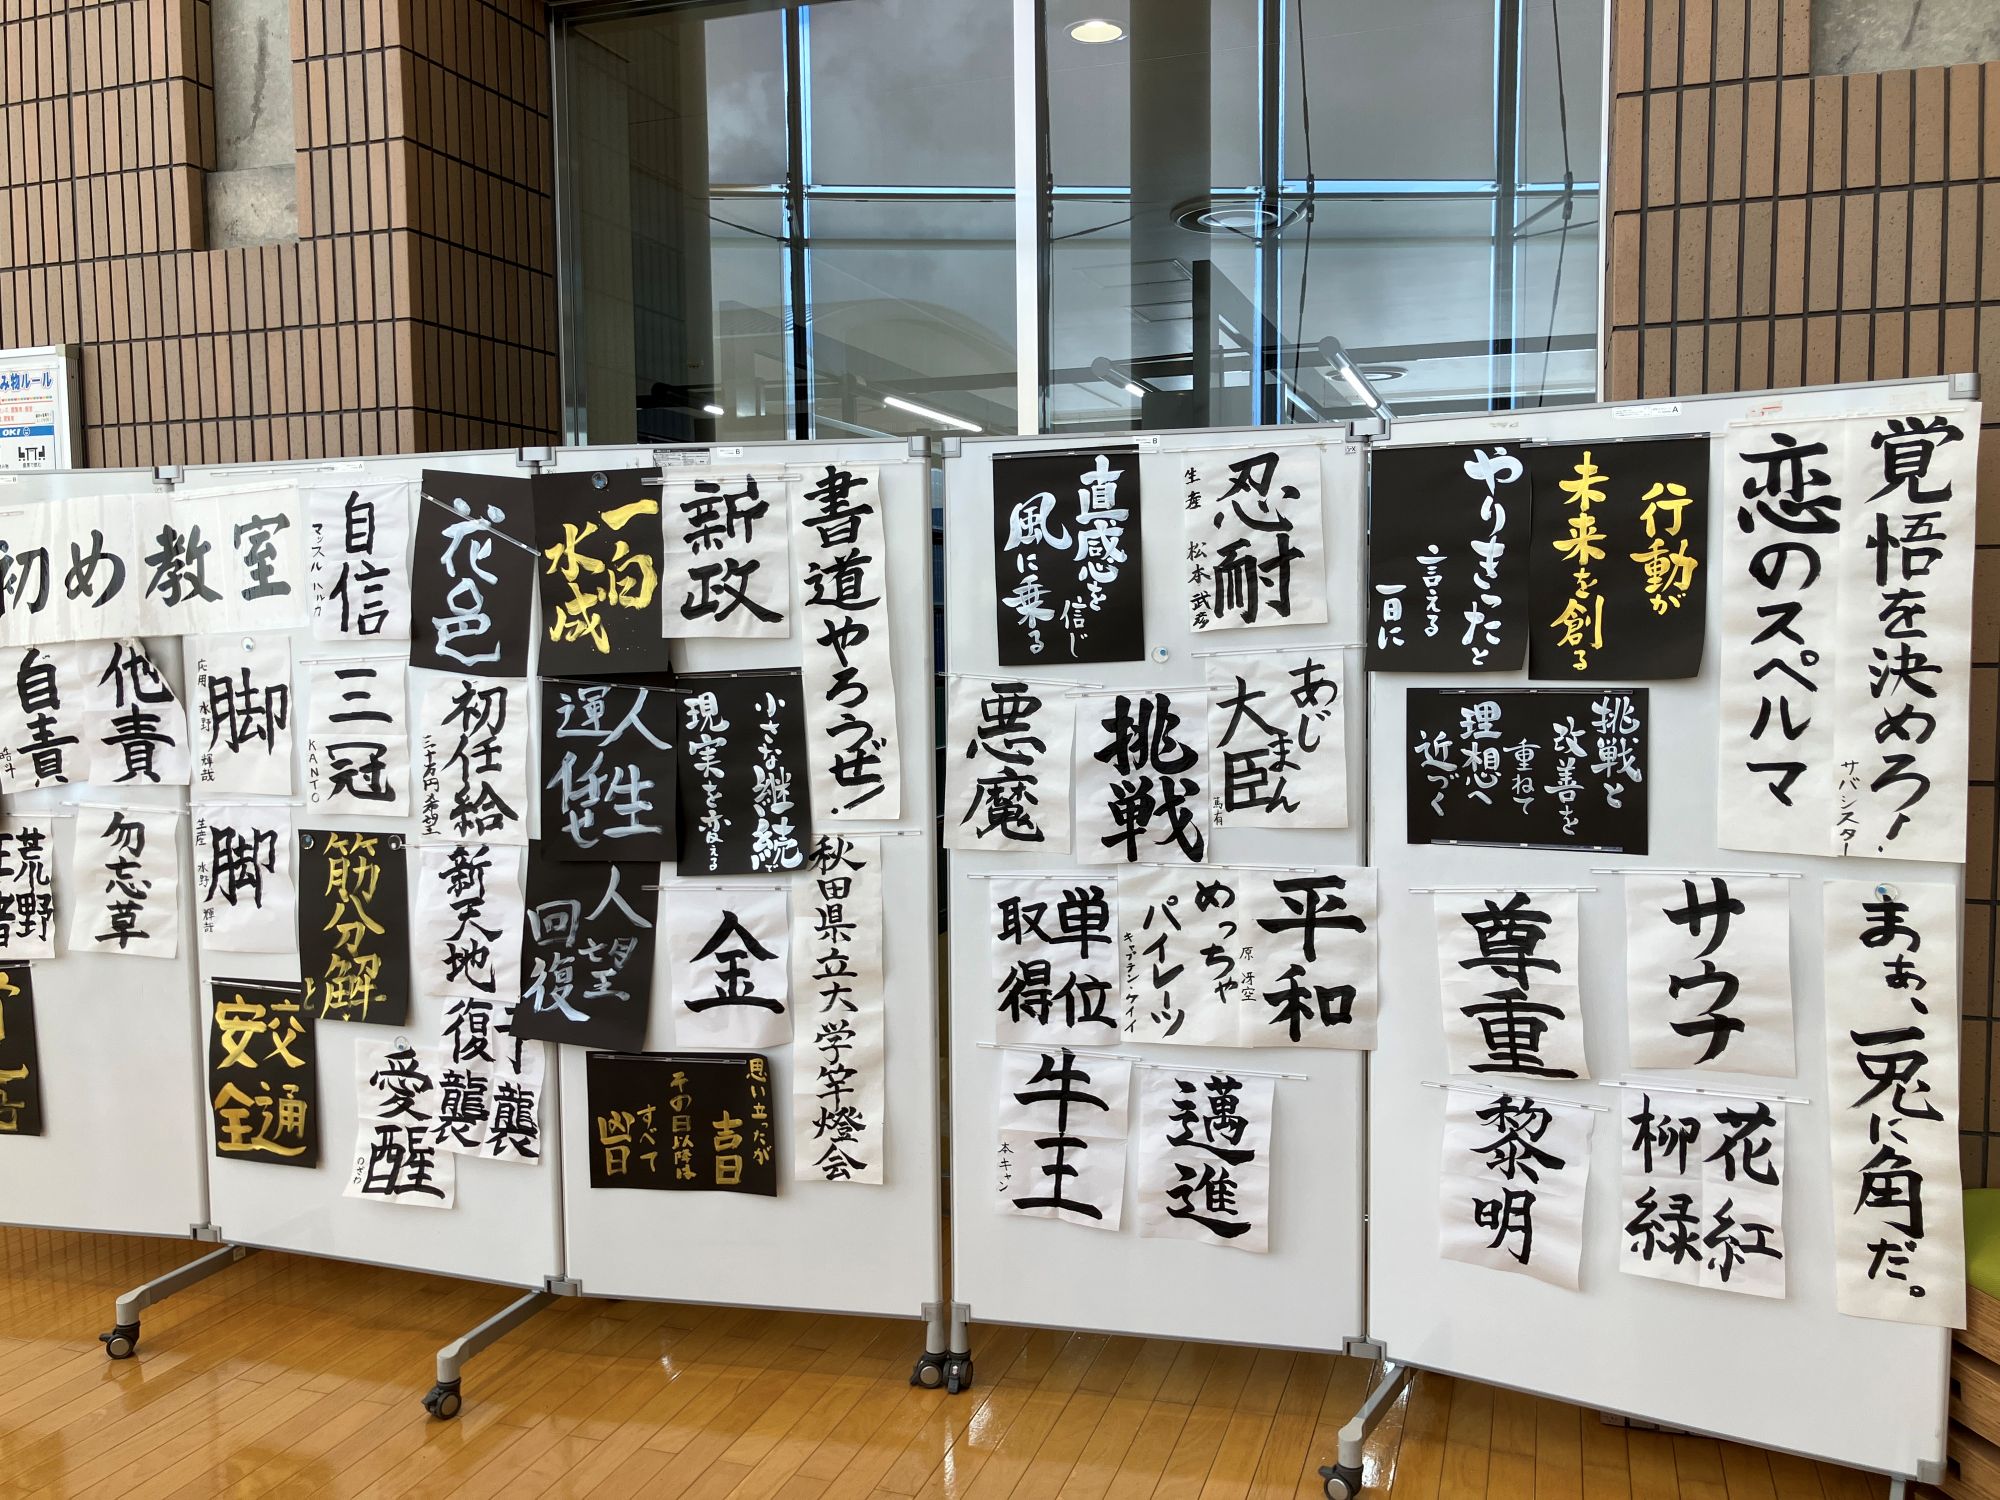 み物ルール
OK!
初め教室
自責
他責
勿忘草
荒野
自信
マッスル ハルカ
脚
応用 水野 輝哉
三冠
KANTO
脚
生産 水野 輝哉
筋分解
と
交通
安全
愛醒
のざわ
花邑
初任給
三十万円希望
新天地
復襲
一白
水成
人生
運任せ
人望
回復
新政
小さな継続で
現実を変える
金
思い立ったが
吉日
その日以降は
すべて
凶日
書道やろうぜ!
秋田県立大学竿燈会
直感を
信じ
風に乗る
忍耐
生産 松本 武彦
悪魔
挑戦
あじまん
大臣
馬有
単位
取得
めっちゃ
パイレーツ
キャプテン・ケイイ
平和
原 冴空
牛王
本キャン
邁進
やりきったと
言える
一日に
行動が
未来を創る
挑戦と
改善を
重ねて
理想へ
近づく
覚悟を決めろ!
恋のスペルマ
サバシスター
尊重
サウナ
黎明
花紅
柳緑
まぁ、一兎に角だ。